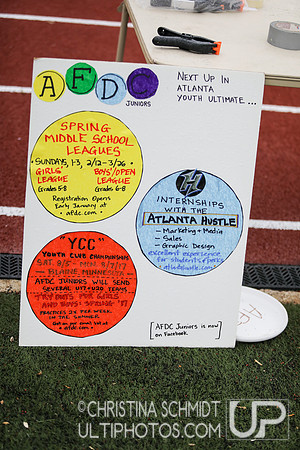 AFDC
JUNIORS
NEXT UP IN
ATLANTA
YOUTH ULTIMATE ...
SPRING
MIDDLE SCHOOL
LEAGUES
• SUNDAYS, 1-3, 2/12-3/26 •
GIRLS' BOYS'/OPEN
LEAGUE LEAGUE
Grades 5-8 Grades 6-8
Registration Opens
Early January at
- afdc.com -
H
INTERNSHIPS
WITH THE
ATLANTA HUSTLE
- Marketing + Media
- Sales
- Graphic Design
excellent experience
for students/perks
atlultimate.com
"YCC"
YOUTH CLUB CHAMPIONSHIPS
SAT. 8/5 - MON. 8/7/17
- BLAINE, MINNESOTA -
AFDC JUNIORS WILL SEND
SEVERAL U17 + U20 TEAMS
TRYOUTS FOR GIRLS
AND BOYS: SPRING '17
PRACTICES 1X PER WEEK
IN THE SUMMER
Get on our email list at
- afdc.com -
[AFDC Juniors is now
on Facebook.]
©CHRISTINA SCHMIDT
ULTIPHOTOS.COM
UP